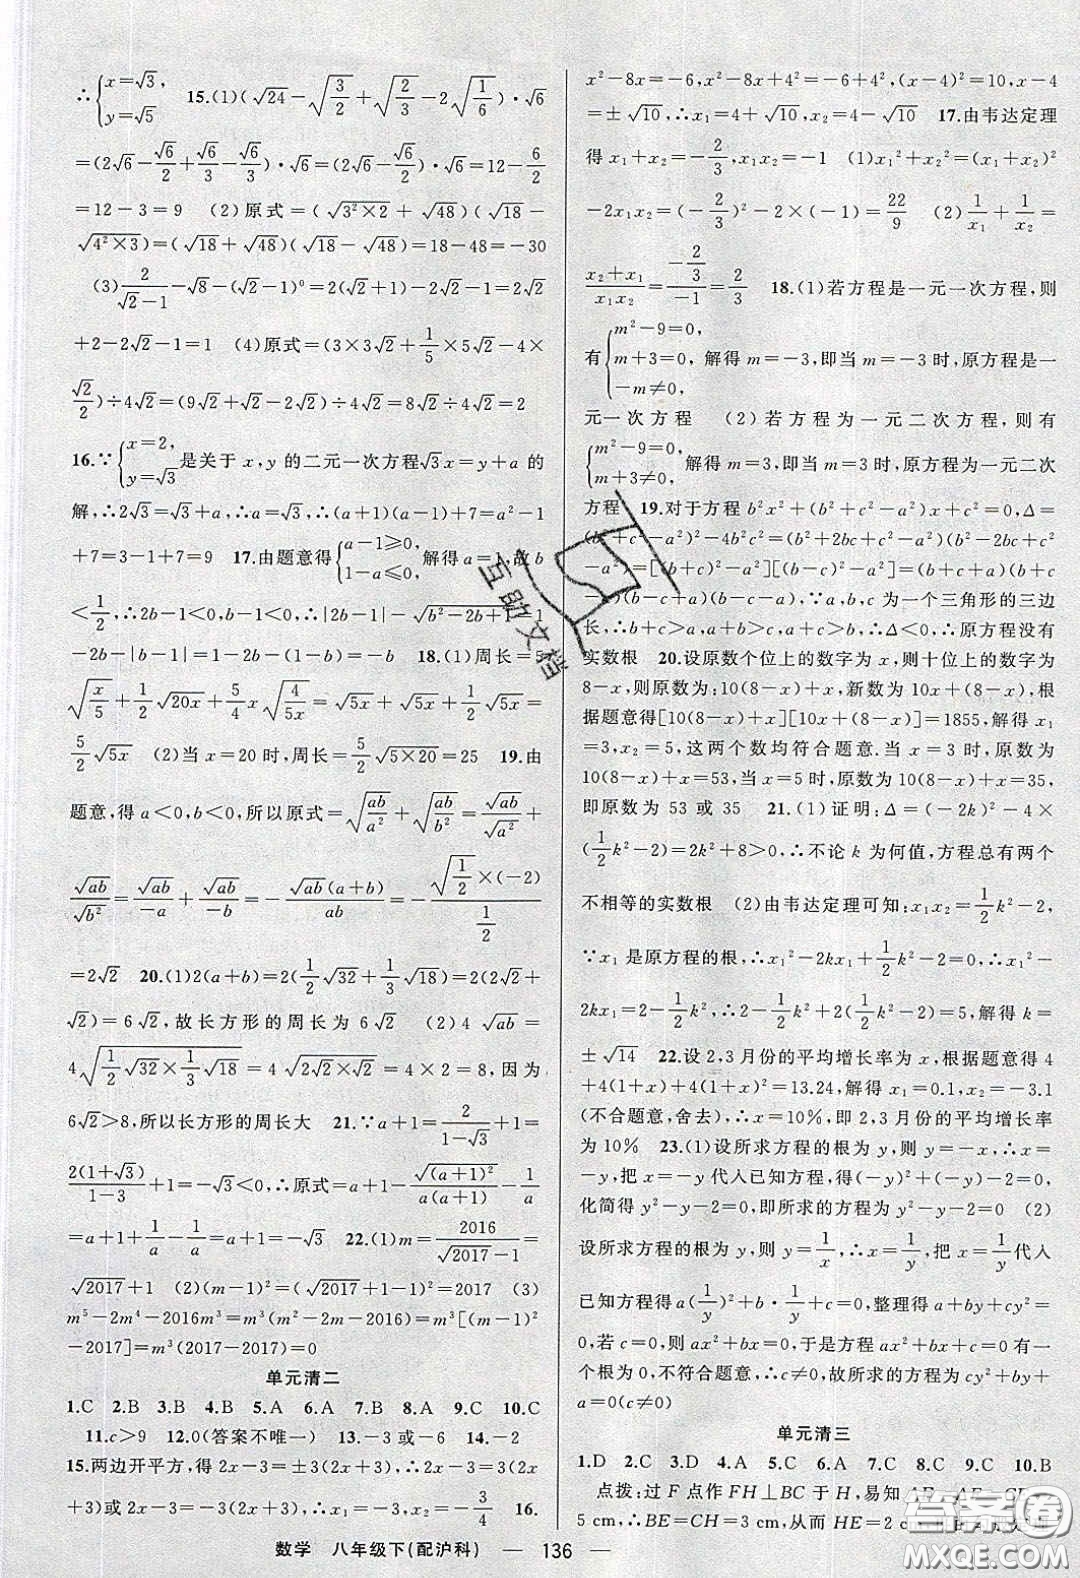 ∴{x=√3, y=√5　15.(1)(√24-√(3/2)+√(2/3)-2√(1/6))·√6
=(2√6-√6/2+√6/3-√6/3)·√6=(2√6-√6/2)·√6=12-6/2
=12-3=9　(2)原式=(√(3²×2)+√48)(√18-
√(4²×3))=(√18+√48)(√18-√48)=18-48=-30
(3)2/(√2-1)-√8-(√2-1)⁰=2(√2+1)-2√2-1=2√2
+2-2√2-1=1　(4)原式=(3×3√2+1/5×5√2-4×
√2/2)÷4√2=(9√2+√2-2√2)÷4√2=8√2÷4√2=2
16.∵{x=2, y=√3是关于x,y的二元一次方程√3x=y+a的
解,∴2√3=√3+a,∴a=√3,∴(a+1)(a-1)+7=a²-1
+7=3-1+7=9　17.由题意得{a-1≥0, 1-a≤0,解得a=1,故b
<1/2,∴2b-1<0,b-1<0,∴|2b-1|-√(b²-2b+1)=1
-2b-|b-1|=1-2b-(1-b)=-b　18.(1)周长=
√(x/5)+1/2√(20x)+5/4x√(4/(5x))=√(5x)/5+√(5x)+1/2√(5x)=
5/2√(5x)　(2)当x=20时,周长=5/2√(5×20)=25　19.由
题意,得a<0,b<0,所以原式=√(ab/a²)+√(ab/b²)=√ab/√a²+
√ab/√b²=√ab/-a+√ab/-b=-√ab(a+b)/ab=-√(1/2)×(-2)/(1/2)
=2√2　20.(1)2(a+b)=2(1/2√32+1/3√18)=2(2√2+
√2)=6√2,故长方形的周长为6√2　(2)4√ab=
4√(1/2√32×1/3√18)=4√(2√2×√2)=4×2=8,因为
6√2>8,所以长方形的周长大　21.∵a+1=2/(1-√3)+1=
2(1+√3)/(1-3)+1=-√3<0,∴原式=a+1-√((a+1)²)/(a(a+1))-1/a
=a+1+1/a-1/a=a+1=-√3　22.(1)m=2016/(√2017-1)=
√2017+1　(2)(m-1)²=(√2017+1-1)²=2017　(3)
m⁵-2m⁴-2016m³=m³(m²-2m-2016)=m³[(m-1)²
-2017]=m³(2017-2017)=0
单元清二
1.C　2.B　3.B　4.B　5.A　6.A　7.B　8.A　9.C　10.C
11.c>9　12.0(答案不唯一)　13.-3或-6　14.-2
15.两边开平方,得2x-3=±3(2x+3),∴2x-3=3(2x
+3)或2x-3=-3(2x+3),∴x₁=-3,x₂=-3/4　16.
x²-8x=-6,x²-8x+4²=-6+4²,(x-4)²=10,x-4
=±√10,∴x₁=4+√10,x₂=4-√10　17.由韦达定理
得x₁+x₂=-2/3,x₁x₂=-1　(1)x₁²+x₂²=(x₁+x₂)²
-2x₁x₂=(-2/3)²-2×(-1)=22/9　(2)1/x₁+1/x₂=
(x₂+x₁)/(x₁x₂)=(-2/3)/(-1)=2/3　18.(1)若方程是一元一次方程,则
有{m²-9=0, m+3=0, -m≠0,解得m=-3,即当m=-3时,原方程是一
元一次方程　(2)若方程为一元二次方程,则有
{m²-9=0, m+3≠0,解得m=3,即当m=3时,原方程为一元二次
方程　19.对于方程b²x²+(b²+c²-a²)x+c²=0,Δ=
(b²+c²-a²)²-4b²c²=(b²+2bc+c²-a²)(b²-2bc+c²
-a²)=[(b+c)²-a²][(b-c)²-a²]=(b+c+a)(b+c
-a)(b-c+a)(b-c-a),∵a,b,c为一个三角形的三边
长,∴b+c>a,a+b>c,a+c>b,∴Δ<0,∴原方程没有
实数根　20.设原数个位上的数字为x,则十位上的数字为
8-x,则原数为:10(8-x)+x,新数为10x+(8-x),根
据题意得[10(8-x)+x][10x+(8-x)]=1855,解得x₁
=3,x₂=5,这两个数均符合题意.当x=3时,原数为
10(8-x)+x=53,当x=5时,原数为10(8-x)+x=35,
即原数为53或35　21.(1)证明:Δ=(-2k)²-4×
(1/2k²-2)=2k²+8>0,∴不论k为何值,方程总有两个
不相等的实数根　(2)由韦达定理可知:x₁x₂=1/2k²-2,
∵x₁是原方程的根,∴x₁²-2kx₁+1/2k²-2=0,∴x₁²-
2kx₁=2-1/2k²,∴2-1/2k²+2(1/2k²-2)=5,解得k=
±√14　22.设2,3月份的平均增长率为x,根据题意得4
+4(1+x)+4(1+x)²=13.24,解得x₁=0.1,x₂=-3.1
(不合题意,舍去),∴x=10%,即2,3月份的平均增长率
为10%　23.(1)设所求方程的根为y,则y=-x,∴x=
-y,把x=-y代人已知方程,得(-y)²+(-y)-2=0,
化简得y²-y-2=0,即所求的方程为y²-y-2=0　(2)
设所求方程的根为y,则y=1/x,∴x=1/y,把x=1/y代人
已知方程得a(1/y)²+b·1/y+c=0,整理得a+by+cy²=
0,若c=0,则ax²+bx=0,于是方程ax²+bx+c=0有一
个根为0,不符合题意,∴c≠0,故所求的方程为cy²+by+
a=0(c≠0)
单元清三
1.D　2.C　3.C　4.A　5.C　6.A　7.C　8.C　9.C　10.B
点拨:过F点作FH⊥BC于H,易知AB=AE=CD=
5 cm,∴BE=CH=3 cm,从而HE=2 c
数学　八年级下(配沪科)　— 136 —
互助文档
答案圈
MXQE.COM